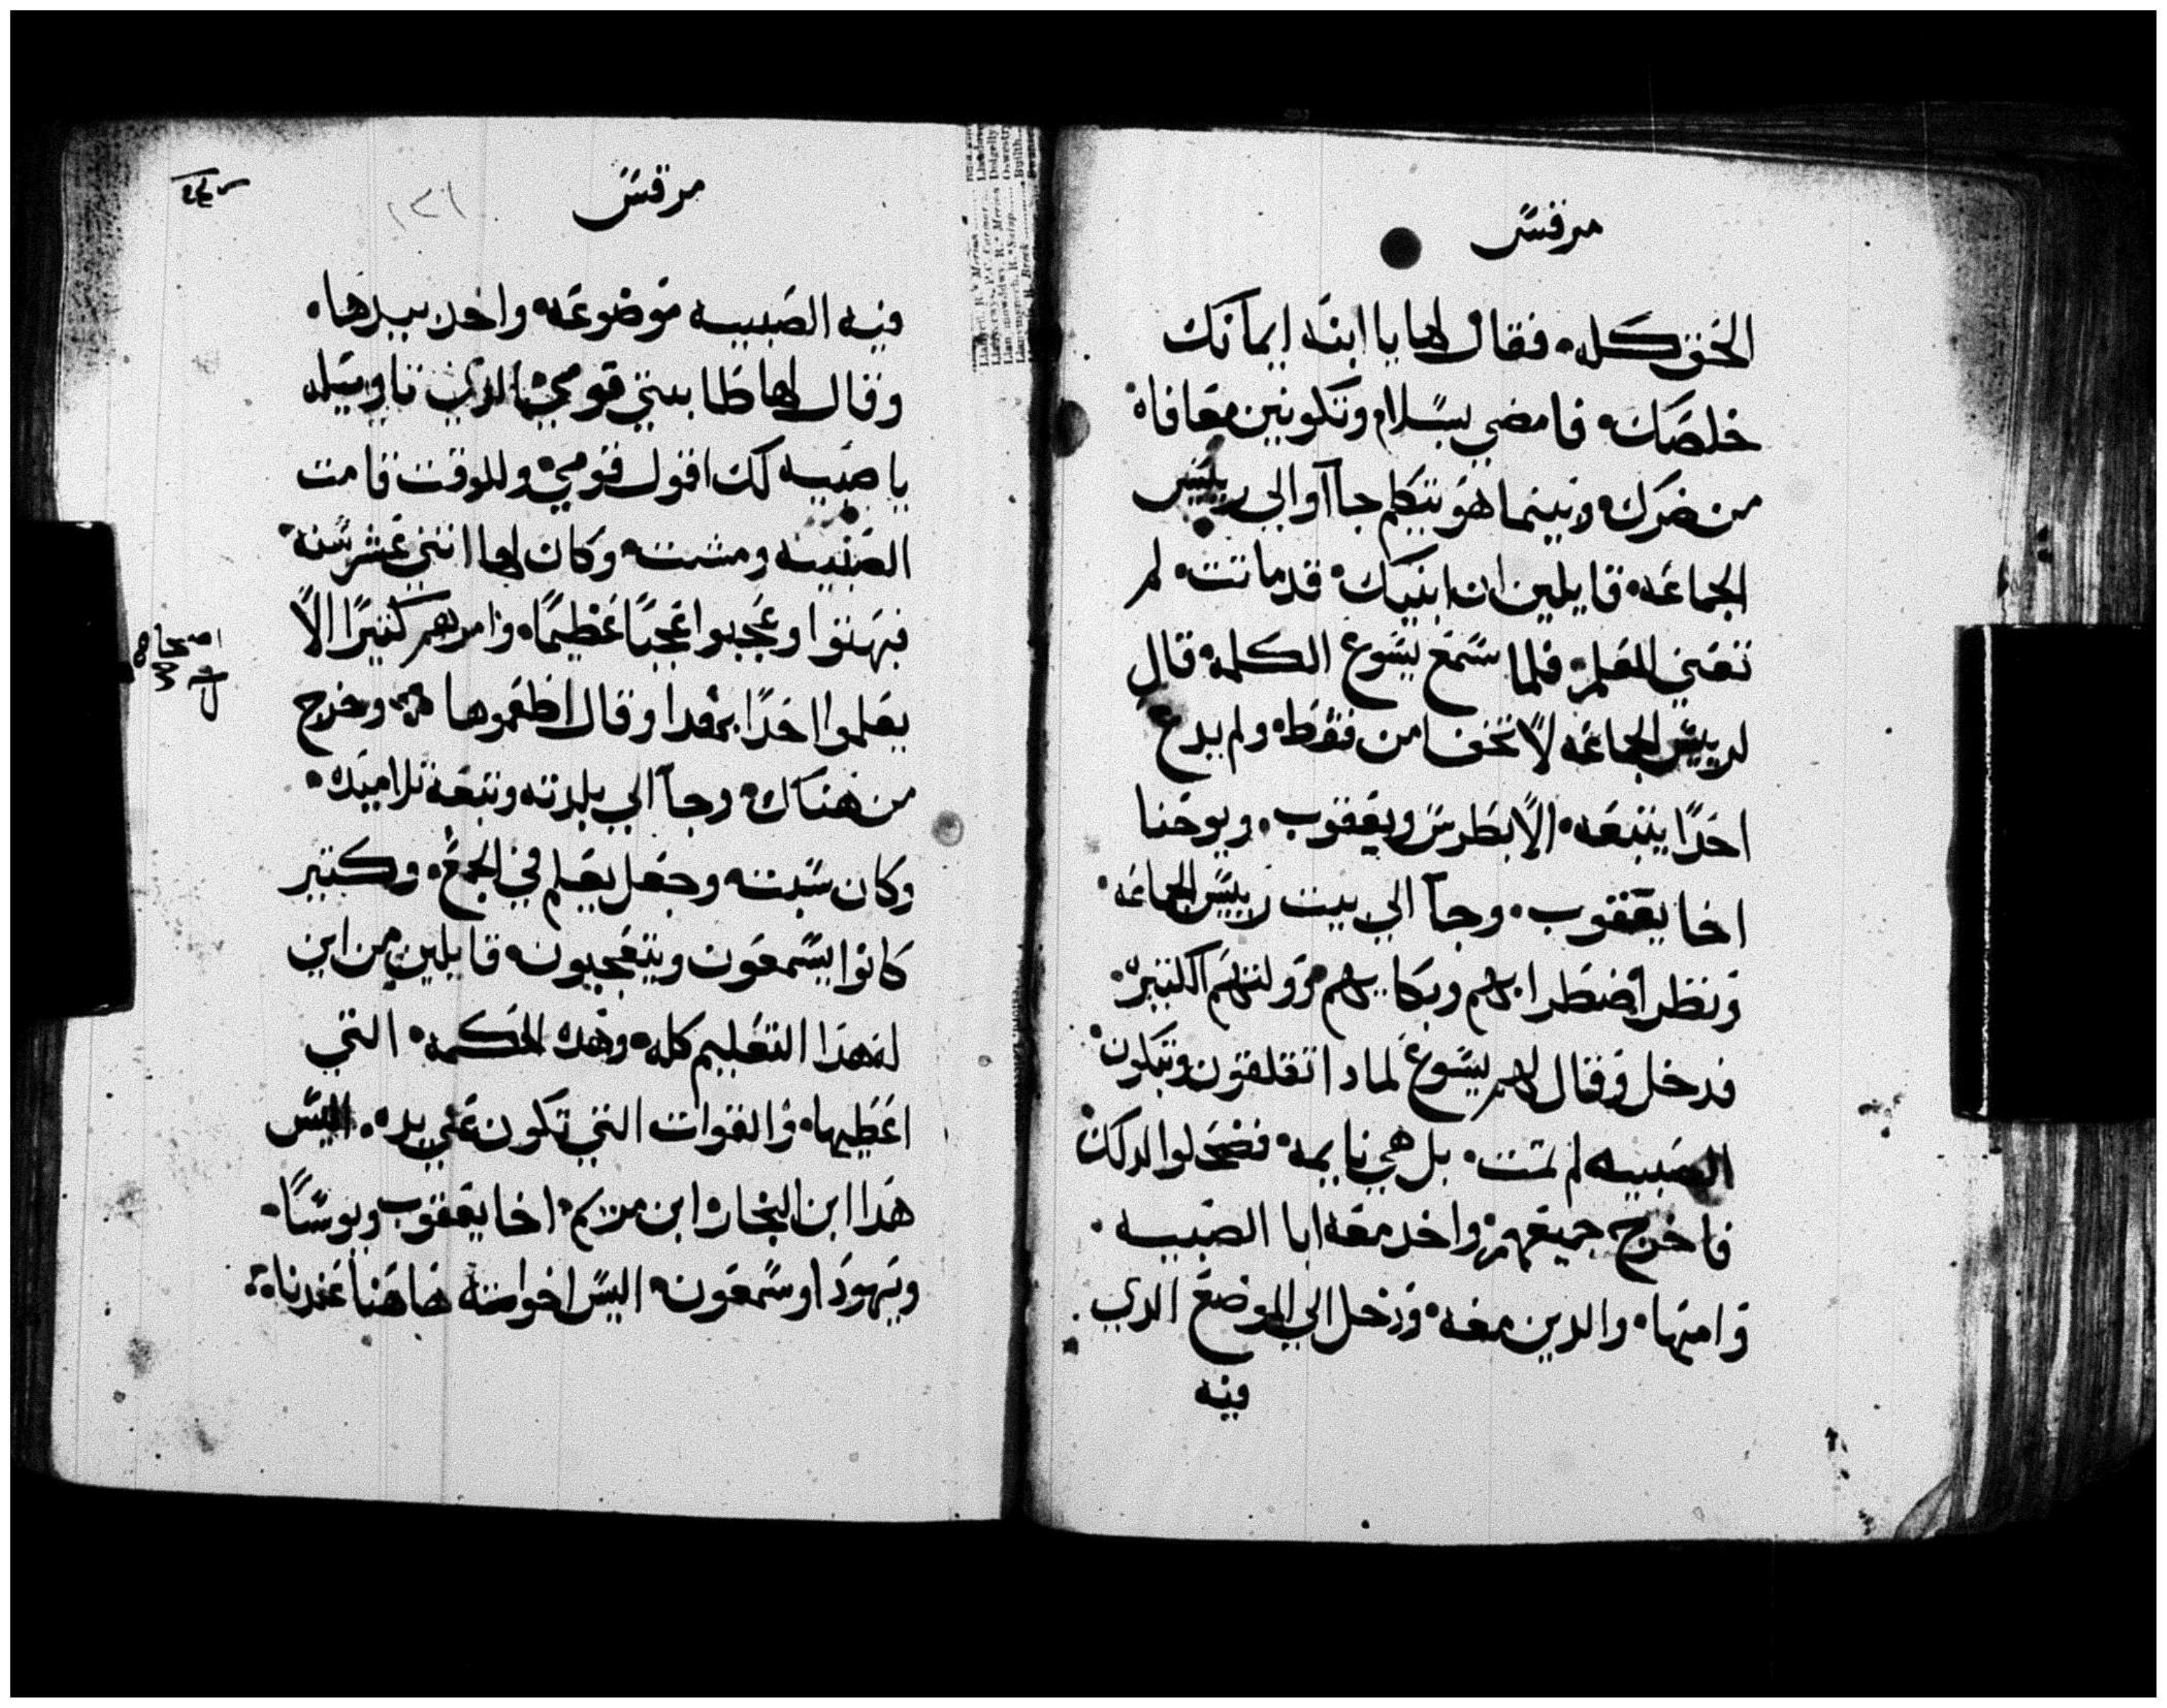 مرقس
الحق كله، فقال لها يا ابنه ايمانك
خلصك، فامضي بسلام وتكونين معافاه
من ضرك، وبينما هو يتكلم جاآوا الي رييس
الجماعه، قايلين ان ابنتك، قد ماتت، لم
تعني المعلم، فلما سمع يسوع الكلمه قال
لرييس الجماعه لا تخف امن فقط، ولم يدع
احدًا يتبعه، الا بطرس ويعقوب، ويوحنا
اخا يعقوب، وجآ الي بيت رييس الجماعه،
ونظر اضطرابهم وبكاييهم وولولتهم الكتيره،
فدخل وقال لهم يسوع لمادا تقلقون وتبكون،
الصبيه لم تمت، بل هي نايمه، فضحكوا لدلك،
فاخرج جميعهم، واخد معه ابا الصبيه،
وامها، والدين معه، ودخل الي الموضع الدي
فيه
مرقس
١٣١
فيه الصبيه موضوعه، واخد بيدها،
وقال لها طابيتي قومي، الدي تاويله
يا صبيه لك اقول قومي، وللوقت قامت
الصبيه ومشت، وكان لها اتني عشر سنه،
فبهتوا وعجبوا عجبًا عظيمًا، وامرهم كتيرًا الا
يعلموا احدًا بهدا وقال اطعموها، وخرج
من هناك، وجآ الي بلدته وتبعه تلاميده،
وكان سبت، وجعل يعلم في المجمع، وكتير
كانوا يسمعون ويتعجبون، قايلين من اين
له هدا التعليم كله، وهده الحكمه، التي
اعطيها، والقوات التي تكون علي يده، اليس
هدا ابن النجار، ابن مريم، اخا يعقوب ويوسا،
ويهودا وسمعون، اليس اخواته هاهنا عندنا،
اصحاح